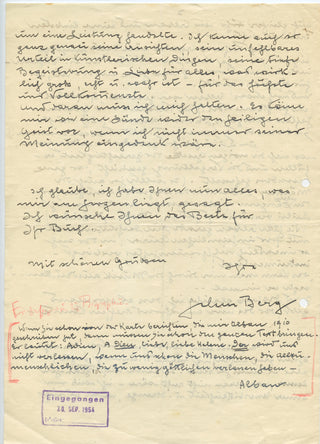 um eine Leitung handelte. Ich kenne auch so
ganz genau seine Ansichten, sein unfehlbares
Urteil in künstlerischen Dingen, seine tiefe
Begeisterung u. Liebe für alles, was wirk-
lich groß, echt u. wahr ist – für das Höchste
und Vollkommenste.
und daran muss ich mich halten. Es käme
mir vor eine Sünde wider den heiligen
Geist vor, wenn ich nicht immer seiner
Meinung eingedenk wäre.
Ich glaube, ich habe Ihnen nun alles, was
mir am Herzen liegt, gesagt.
Ich wünsche Ihnen das Beste für
Ihr Buch.
Mit schönen Grüssen
Ihre
Helene Berg
Wenn Sie schon von der Karte berichten die mir Alban 1910
geschrieben hat, dann müssen Sie schon den ganzen Text bringen.
Er lautet: Adieu, A Dieu, liebe, liebe Helene. Der wird uns
nicht verlassen, wenn uns schon die Menschen, die allzu
menschlichen, die zu wenig göttlichen verlassen haben –
Alban
Eingegangen
20. SEP. 1954